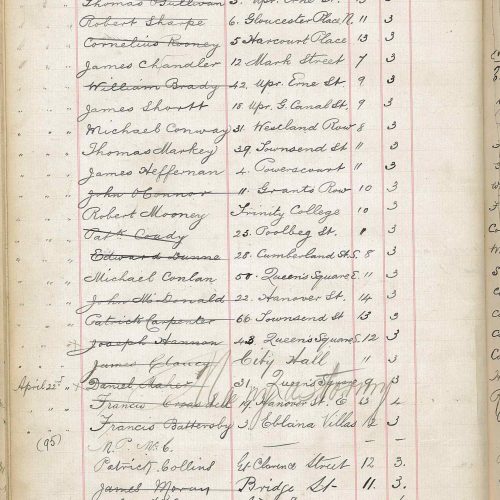 Thomas Sullivan 3. Upr. Erne St. 13 3
Robert Sharpe 6. Gloucester Place N. 11 3
Cornelius Rooney 5 Harcourt Place 13 3
James Chandler 12 Mark Street 7 3
William Brady 42. Upr. Erne St. 9 3
James Shortt 18. Upr. G. Canal St. 9 3
Michael Conway 31. Westland Row 8 3
Thomas Markey 39. Townsend St 11 3
James Heffernan 4. Powerscourt 11 3
John O'Connor 11. Grants Row 10 3
Robert Mooney Trinity College 10 3
Patk. Coady 23. Poolbeg St. 3
Edward Dunne 28. Cumberland St. S. 8 3
Michael Conlan 50. Queen's Square E. 11 3
John McDonald 22. Hanover St. 14 3
Patrick Carpenter 66 Townsend St 13 3
Joseph Hannon 43. Queen's Square S. 12 3
James Clancy City Hall 11 3
April 22nd Daniel Maher 31. Queen's Square 9 3
Francis 14. Hanover St. E 13
Francis Battersby 3. Eblana Villas 3
(95)
Patrick Collins Clarence Street 12 3.
James Moran Bridge St 11. 3.